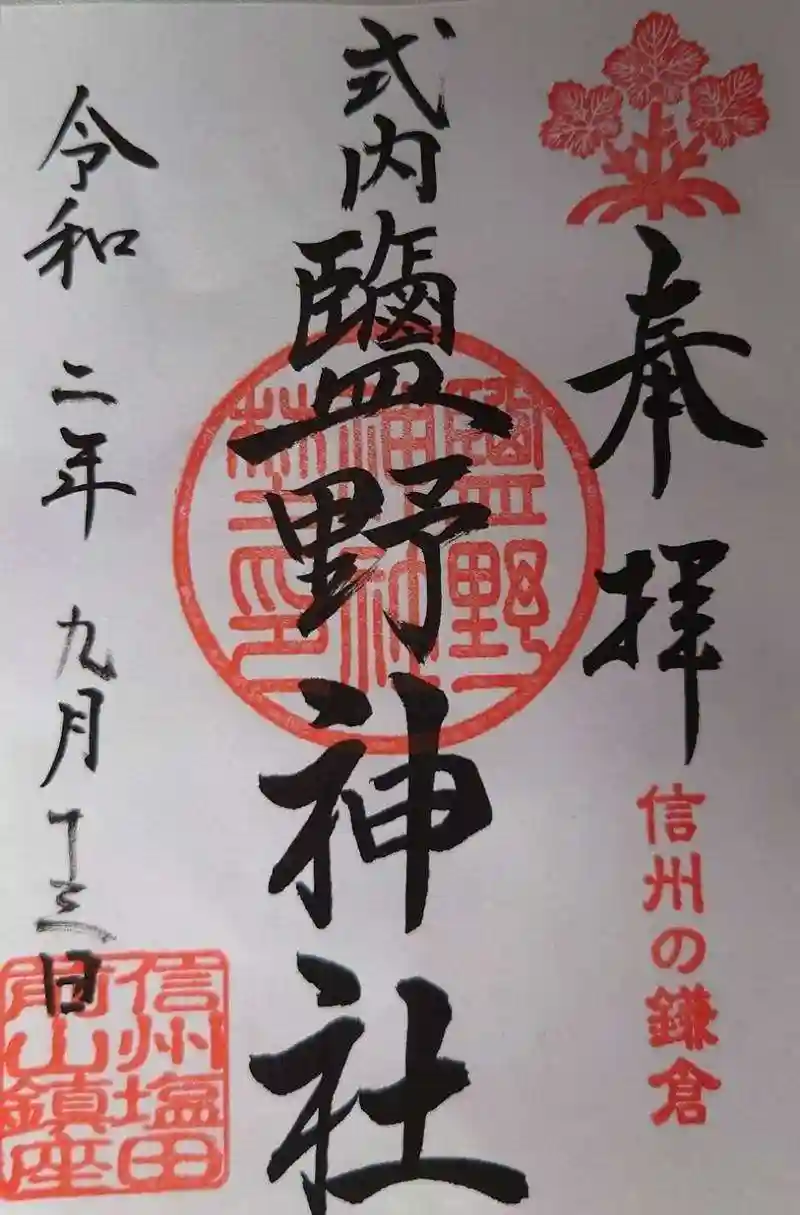 奉拝
信州の鎌倉
式内
鹽野神社
鹽野
神社
令和二年九月十三日
信州塩田
前山鎮座